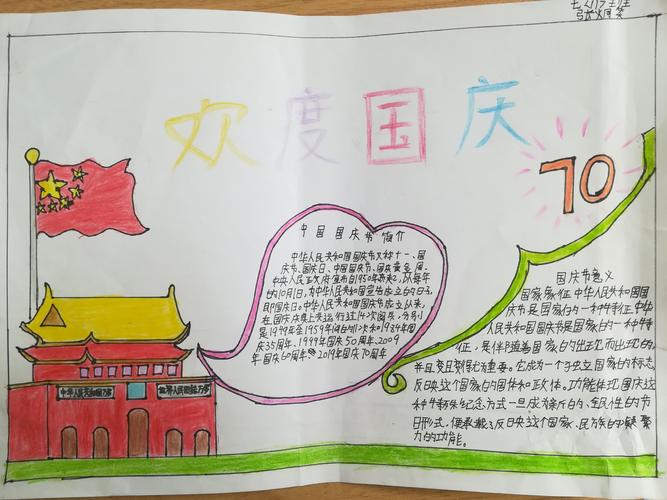 欢度国庆
70
中国国庆节简介
中华人民共和国国庆节又称十一、国
庆节、国庆日、中国国庆节、国庆黄金周。
中央人民政府宣布自1950年起,以每年
的10月1日,为中华人民共和国宣告成立的日子,
即国庆日。中华人民共和国国庆节成立以来,
在国庆庆典上共进行过14次阅兵,分别
是1949年至1959年间的11次和1984年国
庆35周年、1999年国庆50周年、2009
年国庆60周年、2019年国庆70周年
国庆节意义
国家象征 中华人民共和国国
庆节是国家的一种特征,中华
人民共和国国庆节是国家的一种特
征,是伴随着国家的出现而出现的,
并且变得尤为重要。它成为一个独立国家的标志,
反映这个国家的国体和政体。功能体现 国庆这
种特殊纪念方式一旦成为新的、全民性的节
日形式,便承载了反映这个国家、民族的凝聚
力的功能。
中华人民共和国万岁
世界人民团结万岁